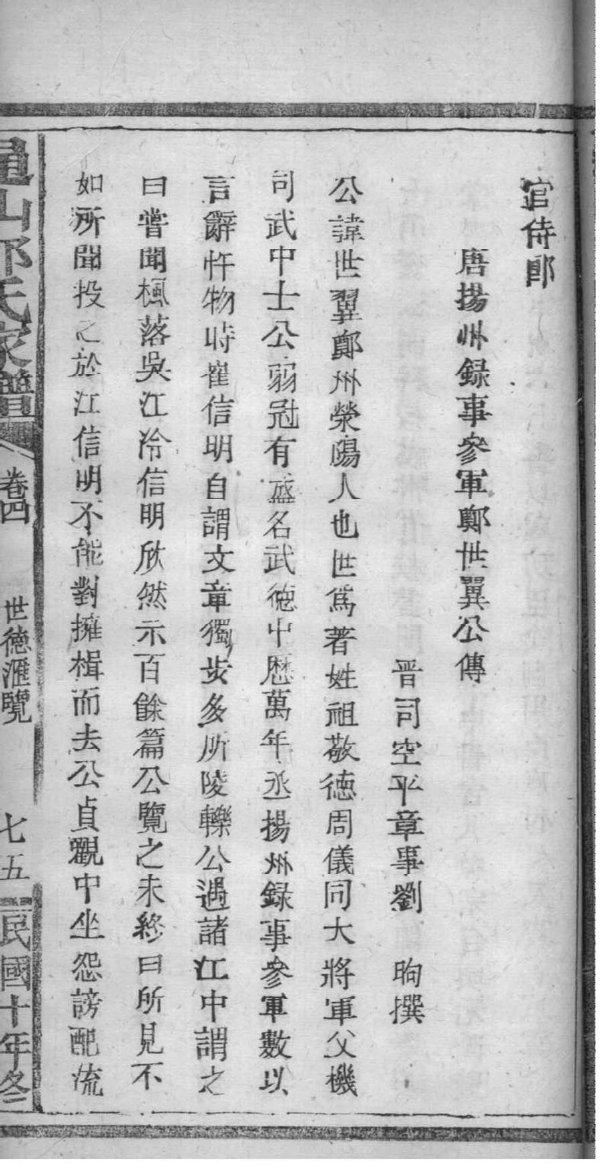 官侍郎
唐揚州録事參軍鄭世翼公傳
晋司空平章事劉昫撰
公諱世翼鄭州滎陽人也世爲著姓祖敬德周儀同大將軍父機
司武中士公弱冠有盛名武德中歷萬年丞揚州録事參軍數以
言辭忤物時崔信明自謂文章獨步多所陵轢公遇諸江中謂之
曰嘗聞楓落吳江冷信明欣然示百餘篇公覽之未終曰所見不
如所聞投之於江信明不能對擁楫而去公貞觀中坐怨謗配流
山鄭氏家譜 卷四 世德滙覽 七五 民國十年冬